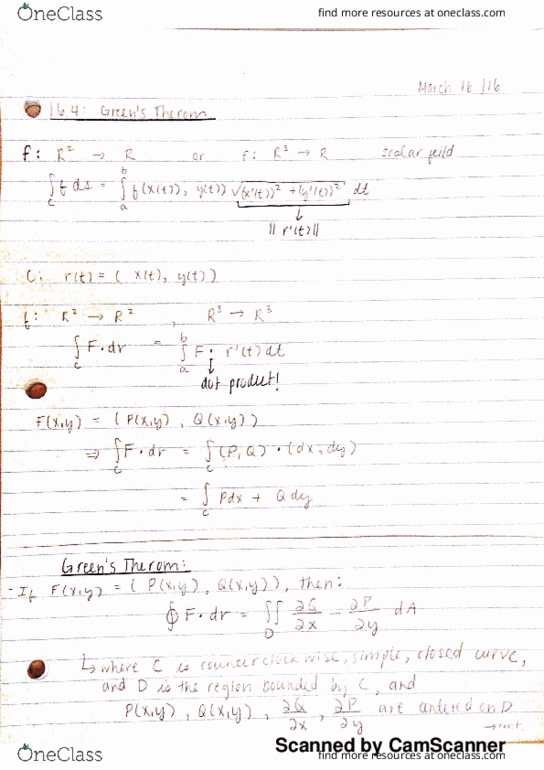 OneClass
find more resources at oneclass.com
March 16 /16
16.4: Green's Therom
f: R² → R or f: R³ → R scalar feild
∫_C f ds = ∫_a^b f(x(t), y(t)) √((x'(t))² + (y'(t))²) dt
↓
|| r'(t) ||
C: r(t) = ( x(t), y(t))
f: R² → R² , R³ → R³
∫_C F · dr = ∫_a^b F · r'(t) dt
↓
dot product!
F(x,y) = (P(x,y) , Q(x,y))
⇒ ∫_C F · dr = ∫_C (P, Q) · (dx, dy)
= ∫_C Pdx + Qdy
Green's Therom:
- If F(x,y) = ( P(x,y) , Q(x,y)), then:
∮_C F · dr = ∬_D ∂Q/∂x - ∂P/∂y dA
↳ where C is counterclockwise, simple, closed curve,
and D is the region bounded by C, and
P(x,y) , Q(x,y) , ∂Q/∂x , ∂P/∂y are on D
→ cont.
Scanned by CamScanner
OneClass
find more resources at oneclass.com